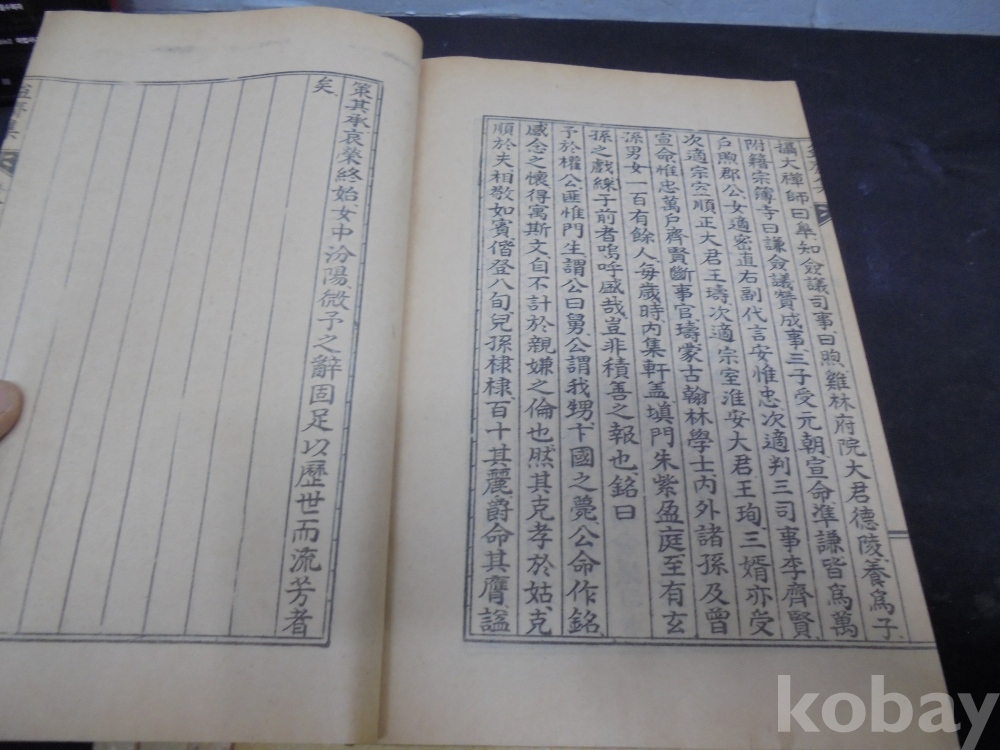 攝大禪師曰皐知僉議司事曰煦雞林府院大君德陵養爲子
附籍宗簿寺曰謙僉議贊成事三子受元朝宣命準謙皆爲萬
戶煦郡公女適密直右副代言安惟忠次適判三司事李齊賢
次適宗室順正大君王璹次適宗室淮安大君王珣三婿亦受
宣命惟忠萬戶齊賢斷事官璹蒙古翰林學士內外諸孫及曾
孫男女一百有餘人每歲時內集軒盖塡門朱紫盈庭至有玄
孫之戲綵于前者嗚呼盛哉豈非積善之報也銘曰
予於權公匪惟門生謂公曰舅公謂我甥卞國之薨公命作銘
感念之懷得寓斯文自不計於親嫌之倫也然其克孝於姑克
順於夫相敬如賓偕登八旬兒孫棣棣百十其麗爵命其膺謚
策其承哀榮終始女中汾陽微予之辭固足以歷世而流芳者
矣
kobay